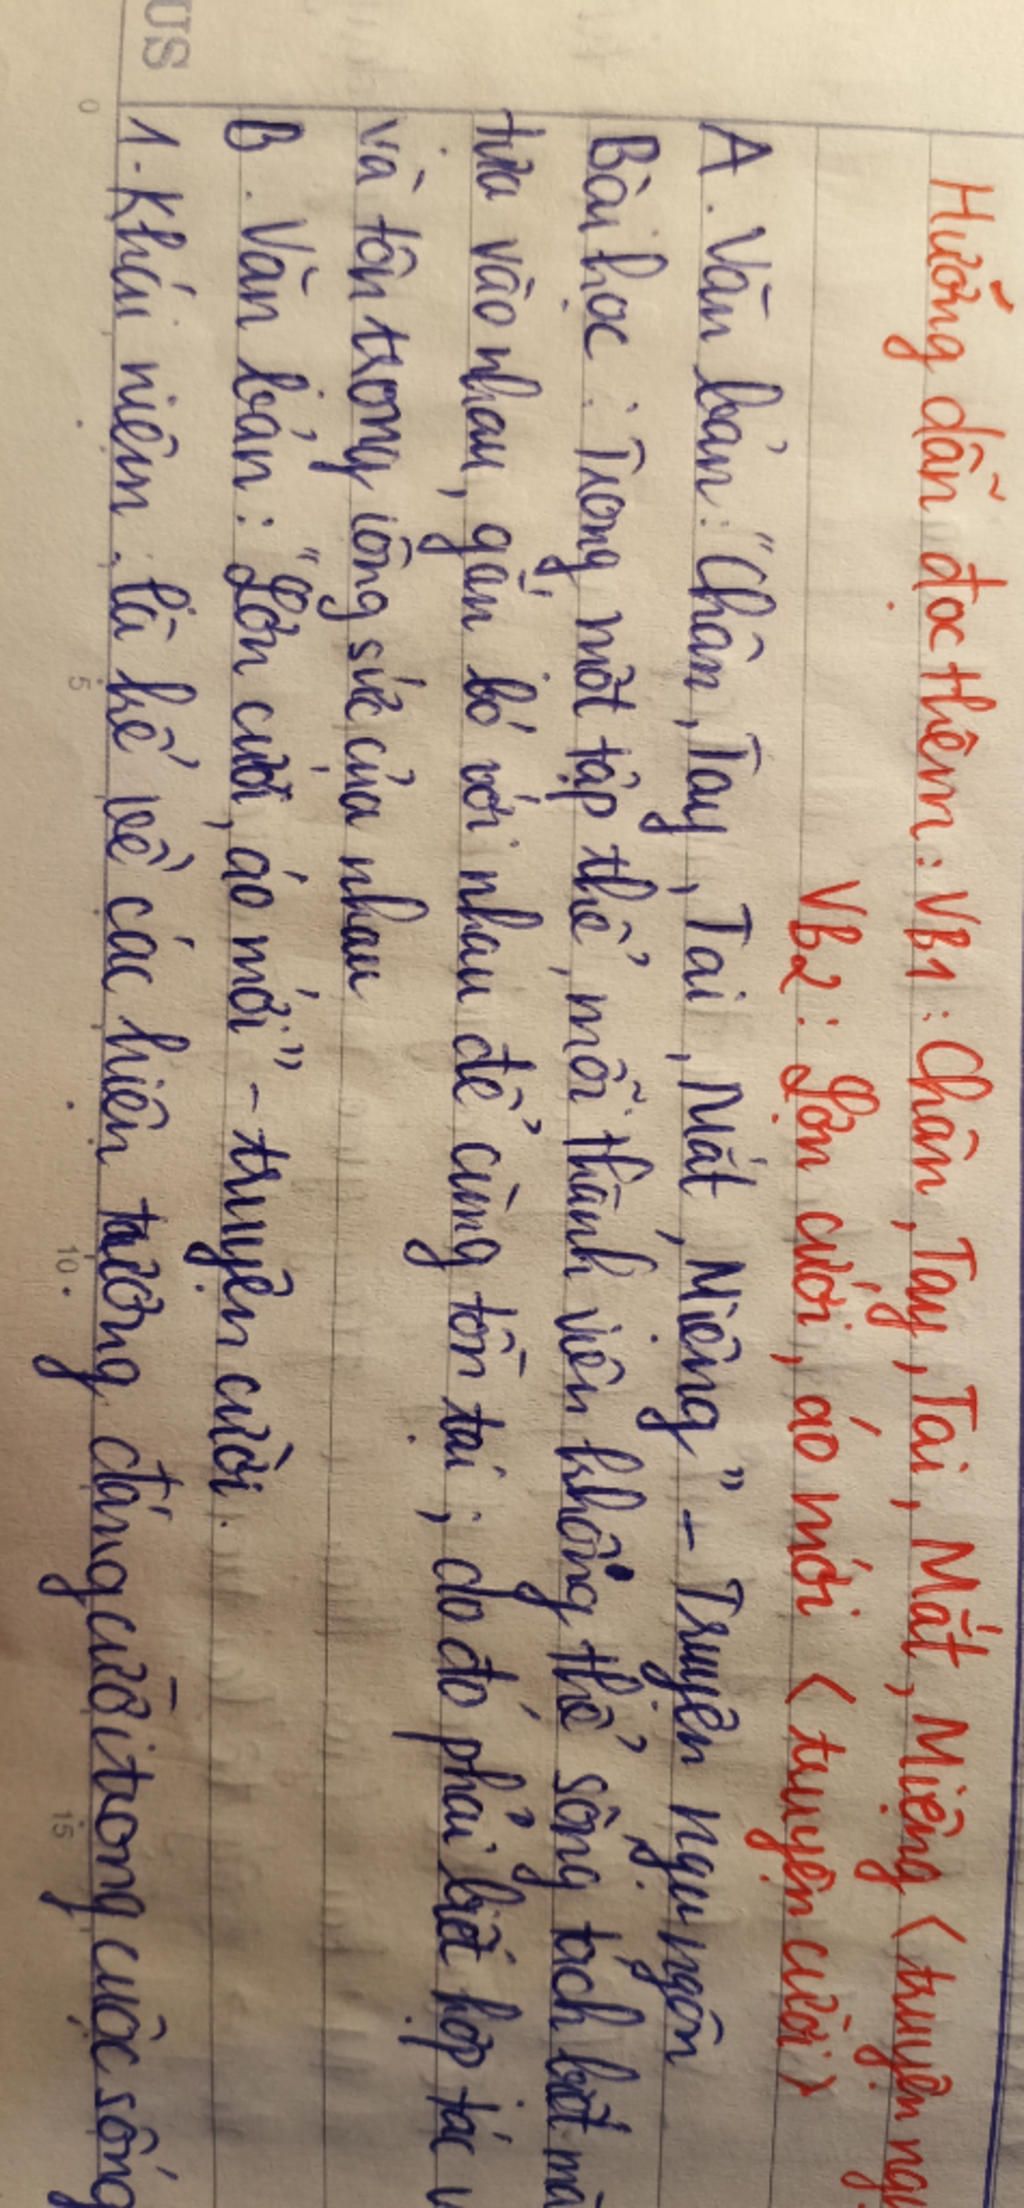 Hướng dẫn đọc thêm: VB1: Chân, Tay, Tai, Mắt, Miệng (truyện ngụ
VB2: Lợn cưới, áo mới (truyện cười)
A. Văn bản: "Chân, Tay, Tai, Mắt, Miệng" - Truyện ngụ ngôn
Bài học: Trong một tập thể, mỗi thành viên không thể sống tách biệt mà
tựa vào nhau, gắn bó với nhau để cùng tồn tại; do đó phải biết hợp tác v
và tôn trọng công sức của nhau
B. Văn bản: "Lợn cưới, áo mới" - truyện cười.
1. Khái niệm: là kể về các hiện tượng đáng cười trong cuộc sống
US
0 5 10 15